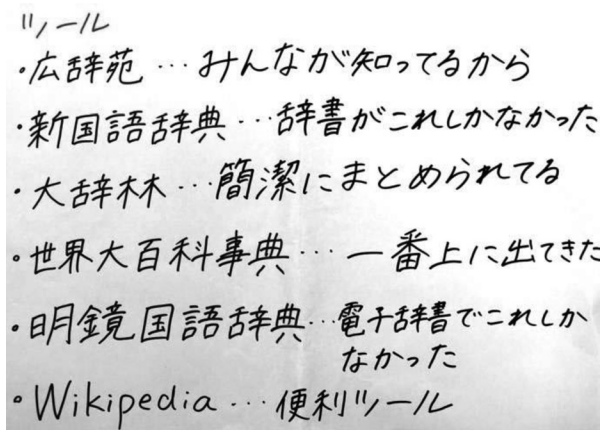 ツール
・広辞苑…みんなが知ってるから
・新国語辞典…辞書がこれしかなかった
・大辞林…簡潔にまとめられてる
・世界大百科事典…一番上に出てきた
・明鏡国語辞典…電子辞書でこれしか
なかった
・Wikipedia…便利ツール